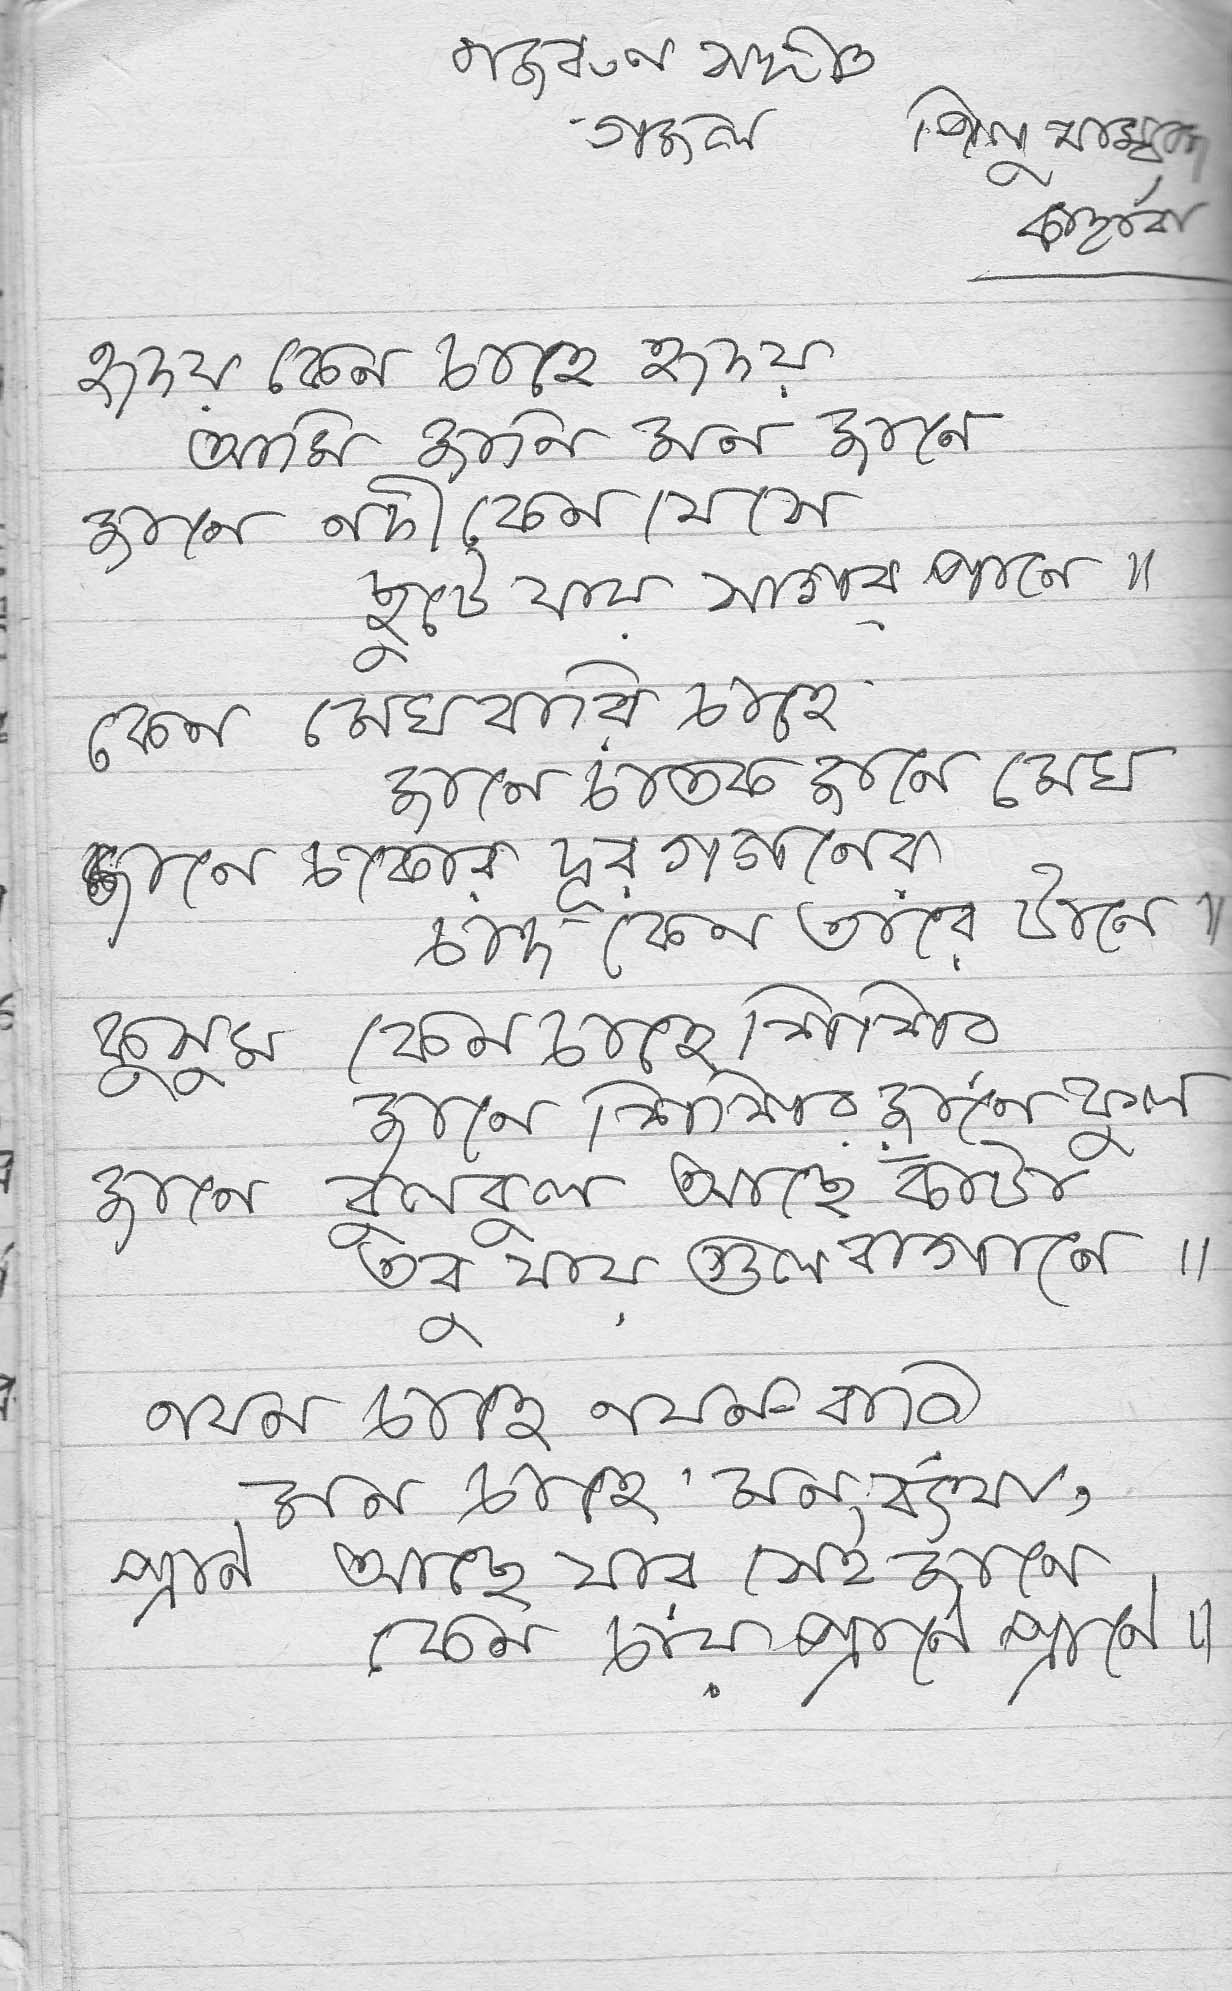 নজরুল সঙ্গীত
গজল
পিলু খাম্বাজ
কাহারবা
হৃদয় কেন চাহে হৃদয়
আমি জানি মন জানে
জানে নদী কেন যে সে
ছুটে যায় সাগর পানে ॥
কেন মেঘ বারি চাহে
জানে চাতক জানে মেঘ
জানে চকোর দূর গগনের
চাঁদ কেন তারে টানে ॥
কুসুম কেন চাহে শিশির
জানে শিশির জানে ফুল
জানে বুলবুল আছে কাঁটা
তবু যায় গুল বাগানে ॥
নয়ন চাহে নয়ন-বারি
মন চাহে মন
প্রাণ আছে যার সেই জানে
কেন চায় প্রাণে প্রাণে ॥